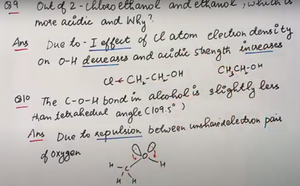 Q9 Out of 2-chloro ethanol and ethanol, which is
more acidic and Why?
Ans Due to - I effect of Cl atom electron density
on O-H decreases and acidic strength increases
Cl ← CH₂-CH₂-OH CH₃CH₂OH
Q10 The C-O-H bond in alcohol is slightly less
than tetrahedral angle (109.5°)
Ans Due to repulsion between unshared electron pair
of oxygen
H C O H
H H